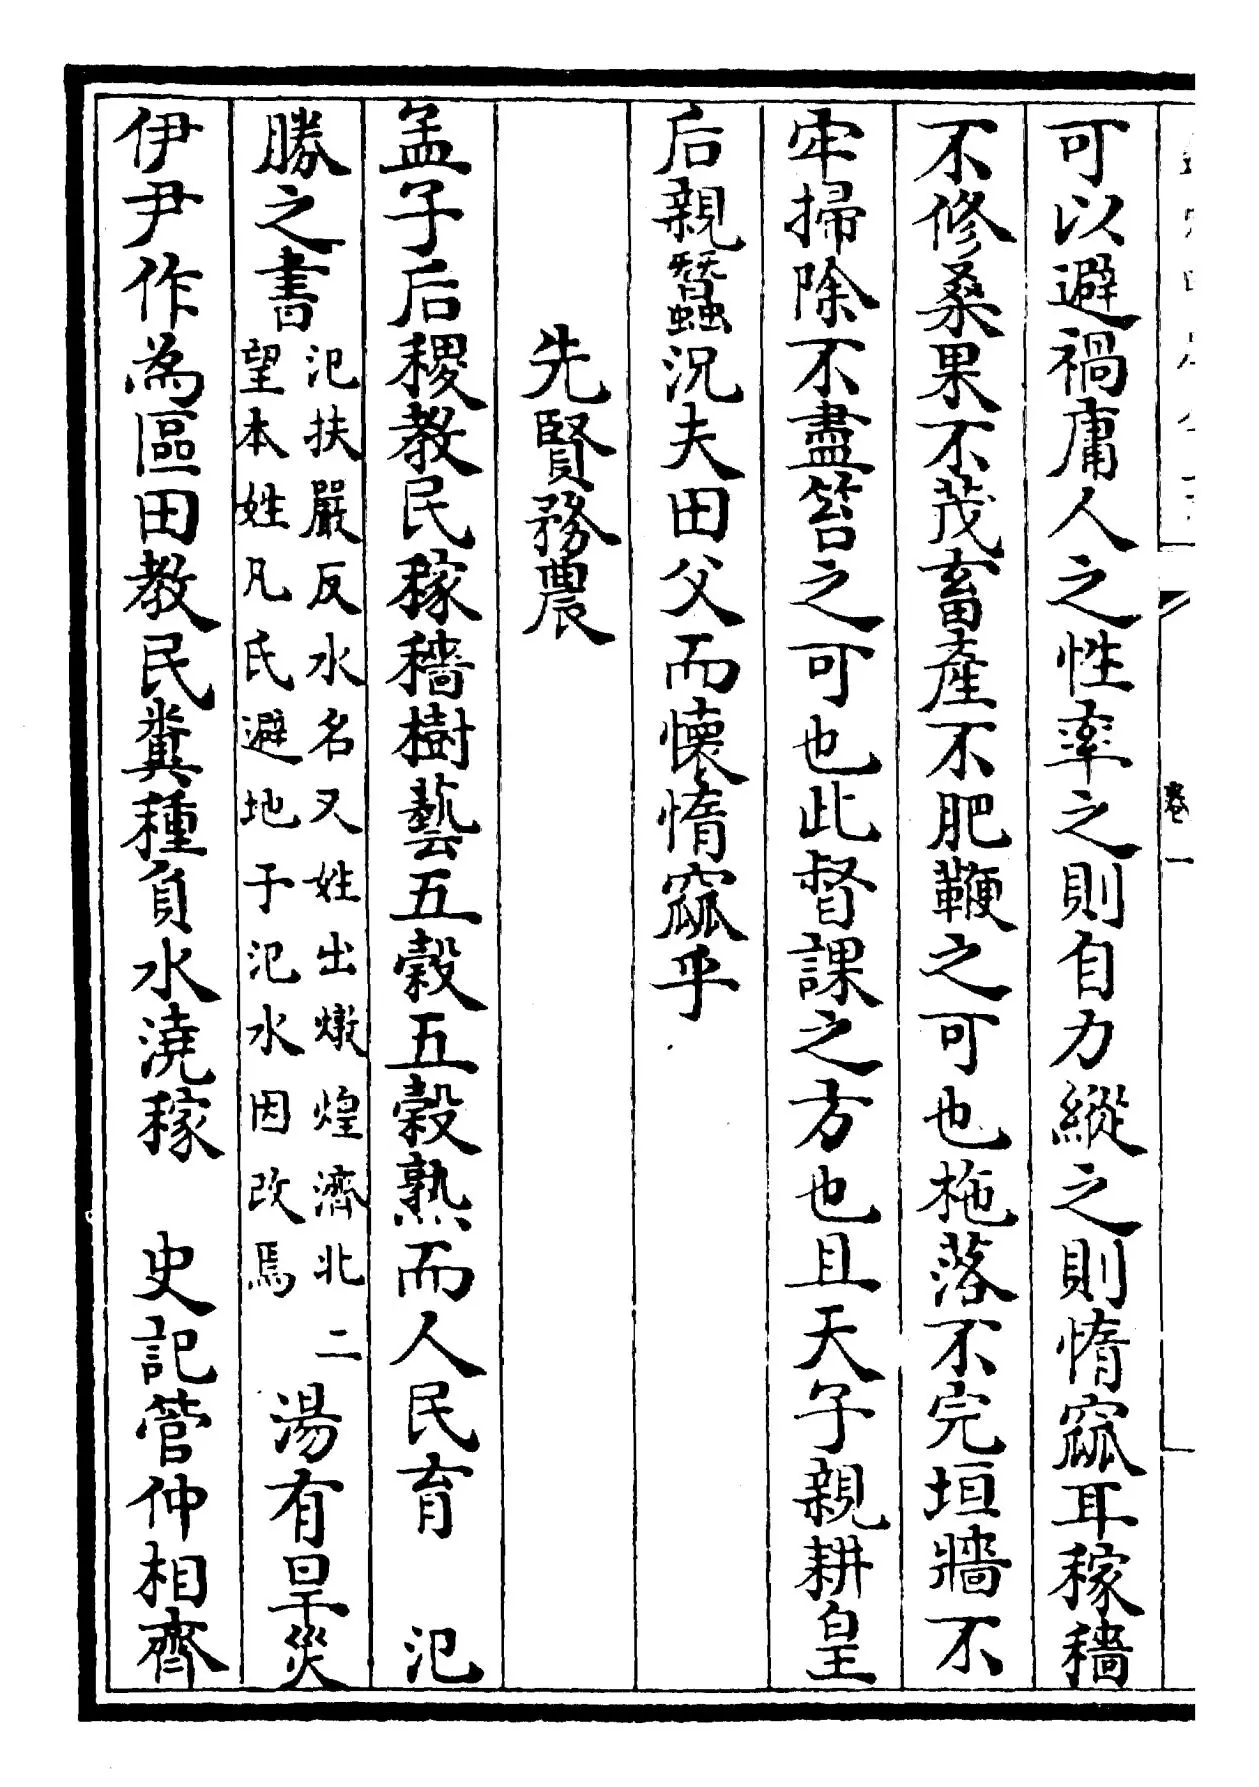 卷一
可以避禍庸人之性率之則自力縱之則惰窳耳稼穡
不修桑果不茂畜產不肥鞭之可也柂落不完垣牆不
牢掃除不盡笞之可也此督課之方也且天子親耕皇
后親蠶況夫田父而懷惰窳乎
先賢務農
孟子后稷教民稼穡樹藝五穀五穀熟而人民育　氾
勝之書
氾扶嚴反水名又姓出燉煌濟北二
望本姓凡氏避地于氾水因改焉
湯有旱災
伊尹作為區田教民糞種負水澆稼　史記管仲相齊